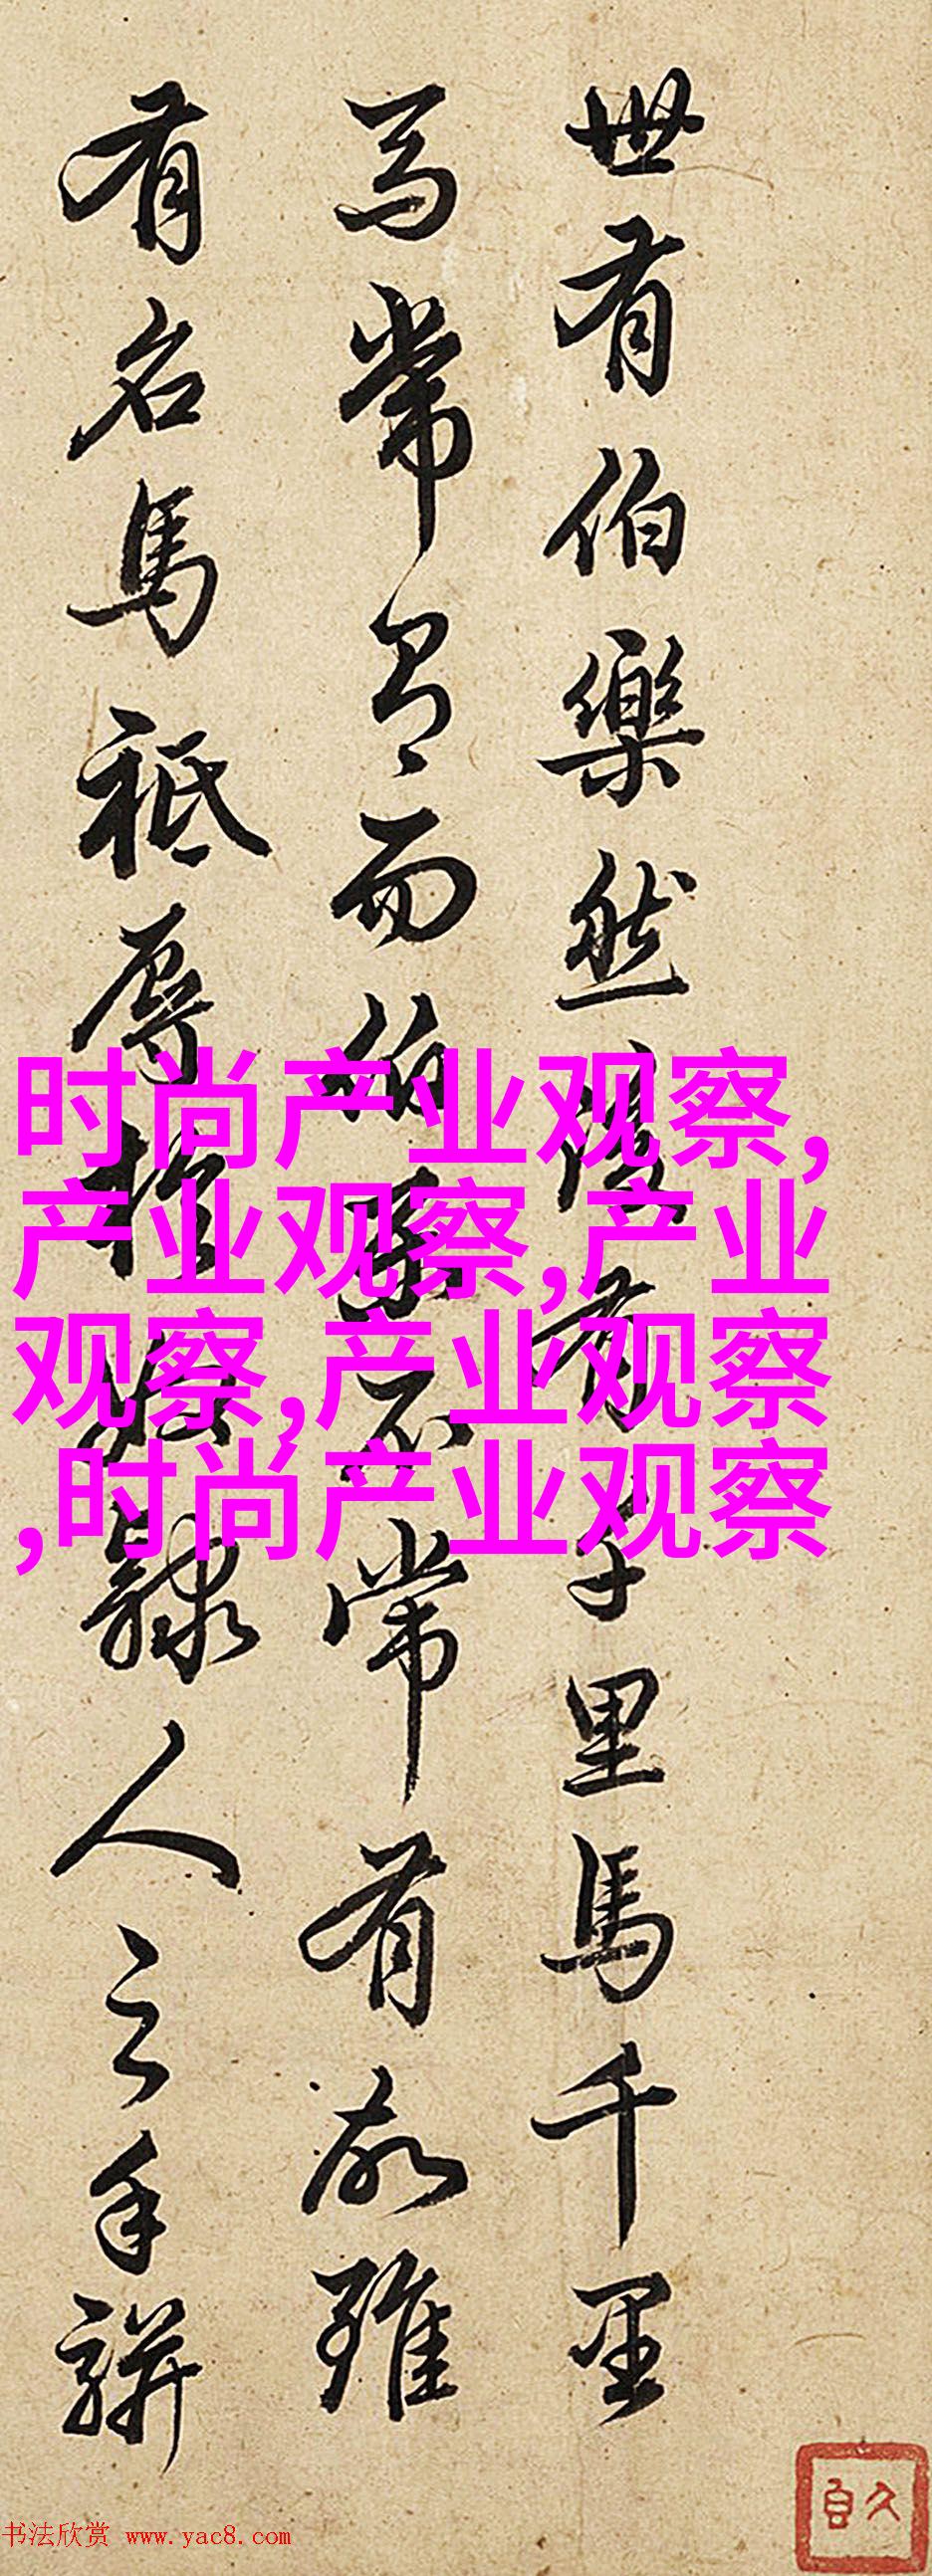 世有伯樂然後有千里馬千里
馬常有而伯樂不常有故雖
有名馬祗辱於奴隸人之手駢
时尚产业观察,
产业观察,产业
观察,产业观察
,时尚产业观察
书法欣赏 www.yac8.com